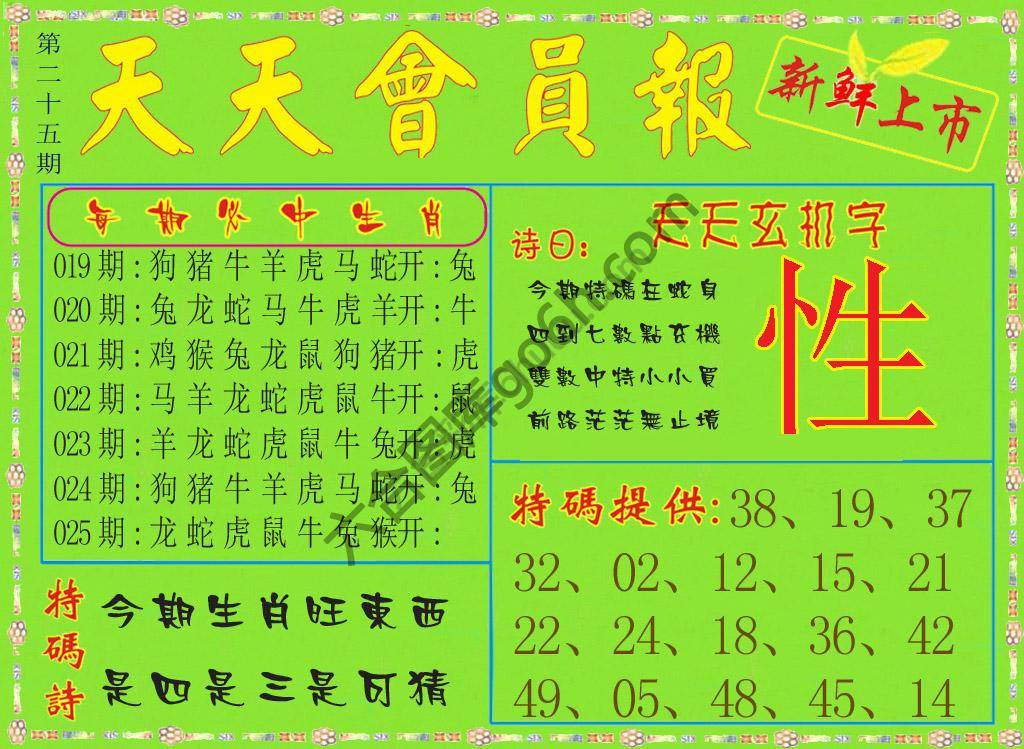 第二十五期
天天會員報
新鮮上市
每期必中生肖
019期:狗猪牛羊虎马蛇开:兔
020期:兔龙蛇马牛虎羊开:牛
021期:鸡猴兔龙鼠狗猪开:虎
022期:马羊龙蛇虎鼠牛开:鼠
023期:羊龙蛇虎鼠牛兔开:虎
024期:狗猪牛羊虎马蛇开:兔
025期:龙蛇虎鼠牛兔猴开:
天天玄机字
诗曰:
今期特碼在蛇身
四到七數點玄機
雙數中特小小買
前路茫茫無止境
性
特碼提供:38、19、37
32、02、12、15、21
22、24、18、36、42
49、05、48、45、14
特碼詩
今期生肖旺東西
是四是三是可猜
六合图库go6h.com